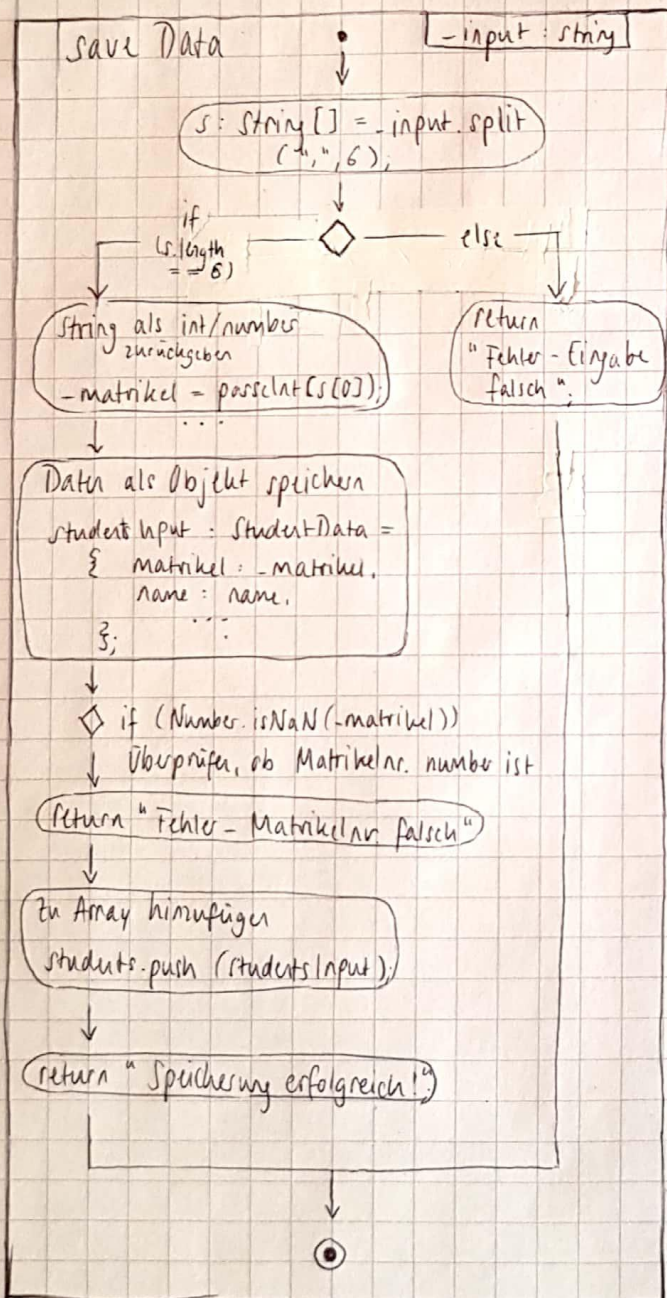 save Data
_input : string
s : String [] = _input.split
(",", 6);
if
(s.length
== 6)
else
String als int/number
zurückgeben
_matrikel = parseInt(s[0]);
...
return
"Fehler - Eingabe
falsch";
Daten als Objekt speichern
studentsInput : StudentData =
{ matrikel : _matrikel,
name : name,
...
};
if (Number.isNaN(_matrikel))
Überprüfen, ob Matrikelnr. number ist
return "Fehler - Matrikelnr. falsch"
zu Array hinzufügen
students.push (studentsInput);
return "Speicherung erfolgreich!";